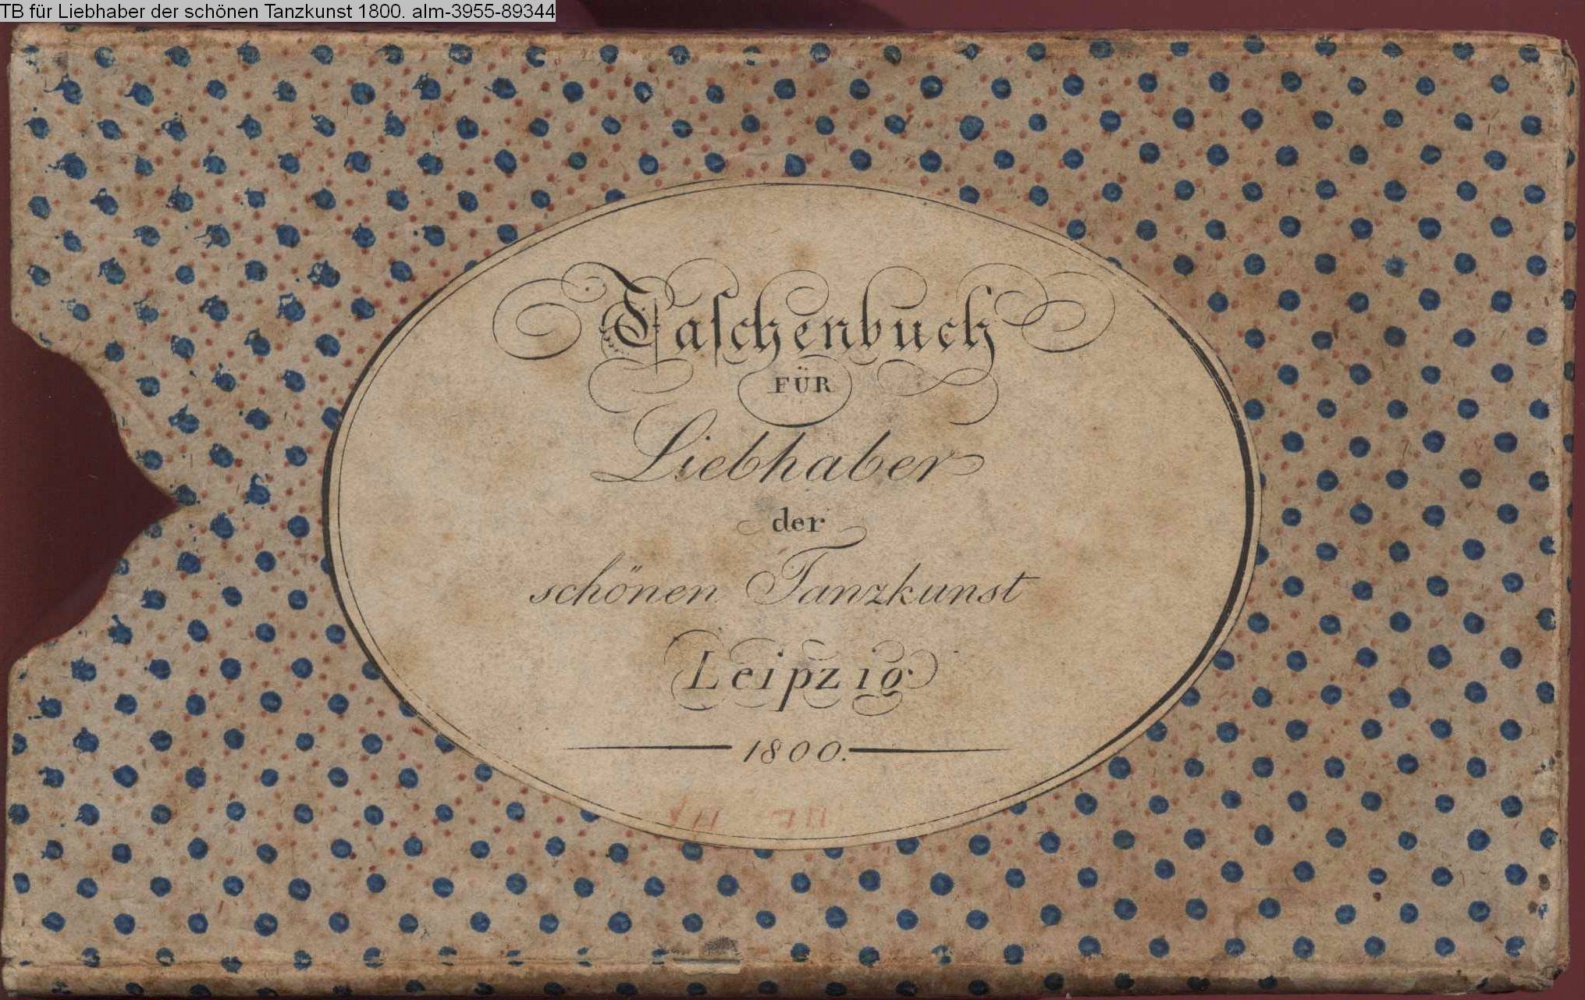 TB für Liebhaber der schönen Tanzkunst 1800. alm-3955-89344
Taſchenbuch
FÜR
Liebhaber
der
schönen Tanzkunst
Leipzig
1800.